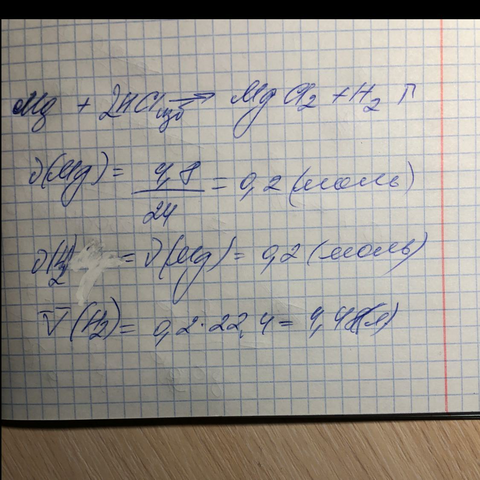 Mg + 2HCl изб → MgCl2 + H2 ↑
ν(Mg) = 4,8 / 24 = 0,2 (моль)
ν(H2) = ν(Mg) = 0,2 (моль)
V(H2) = 0,2 · 22,4 = 4,48(л)